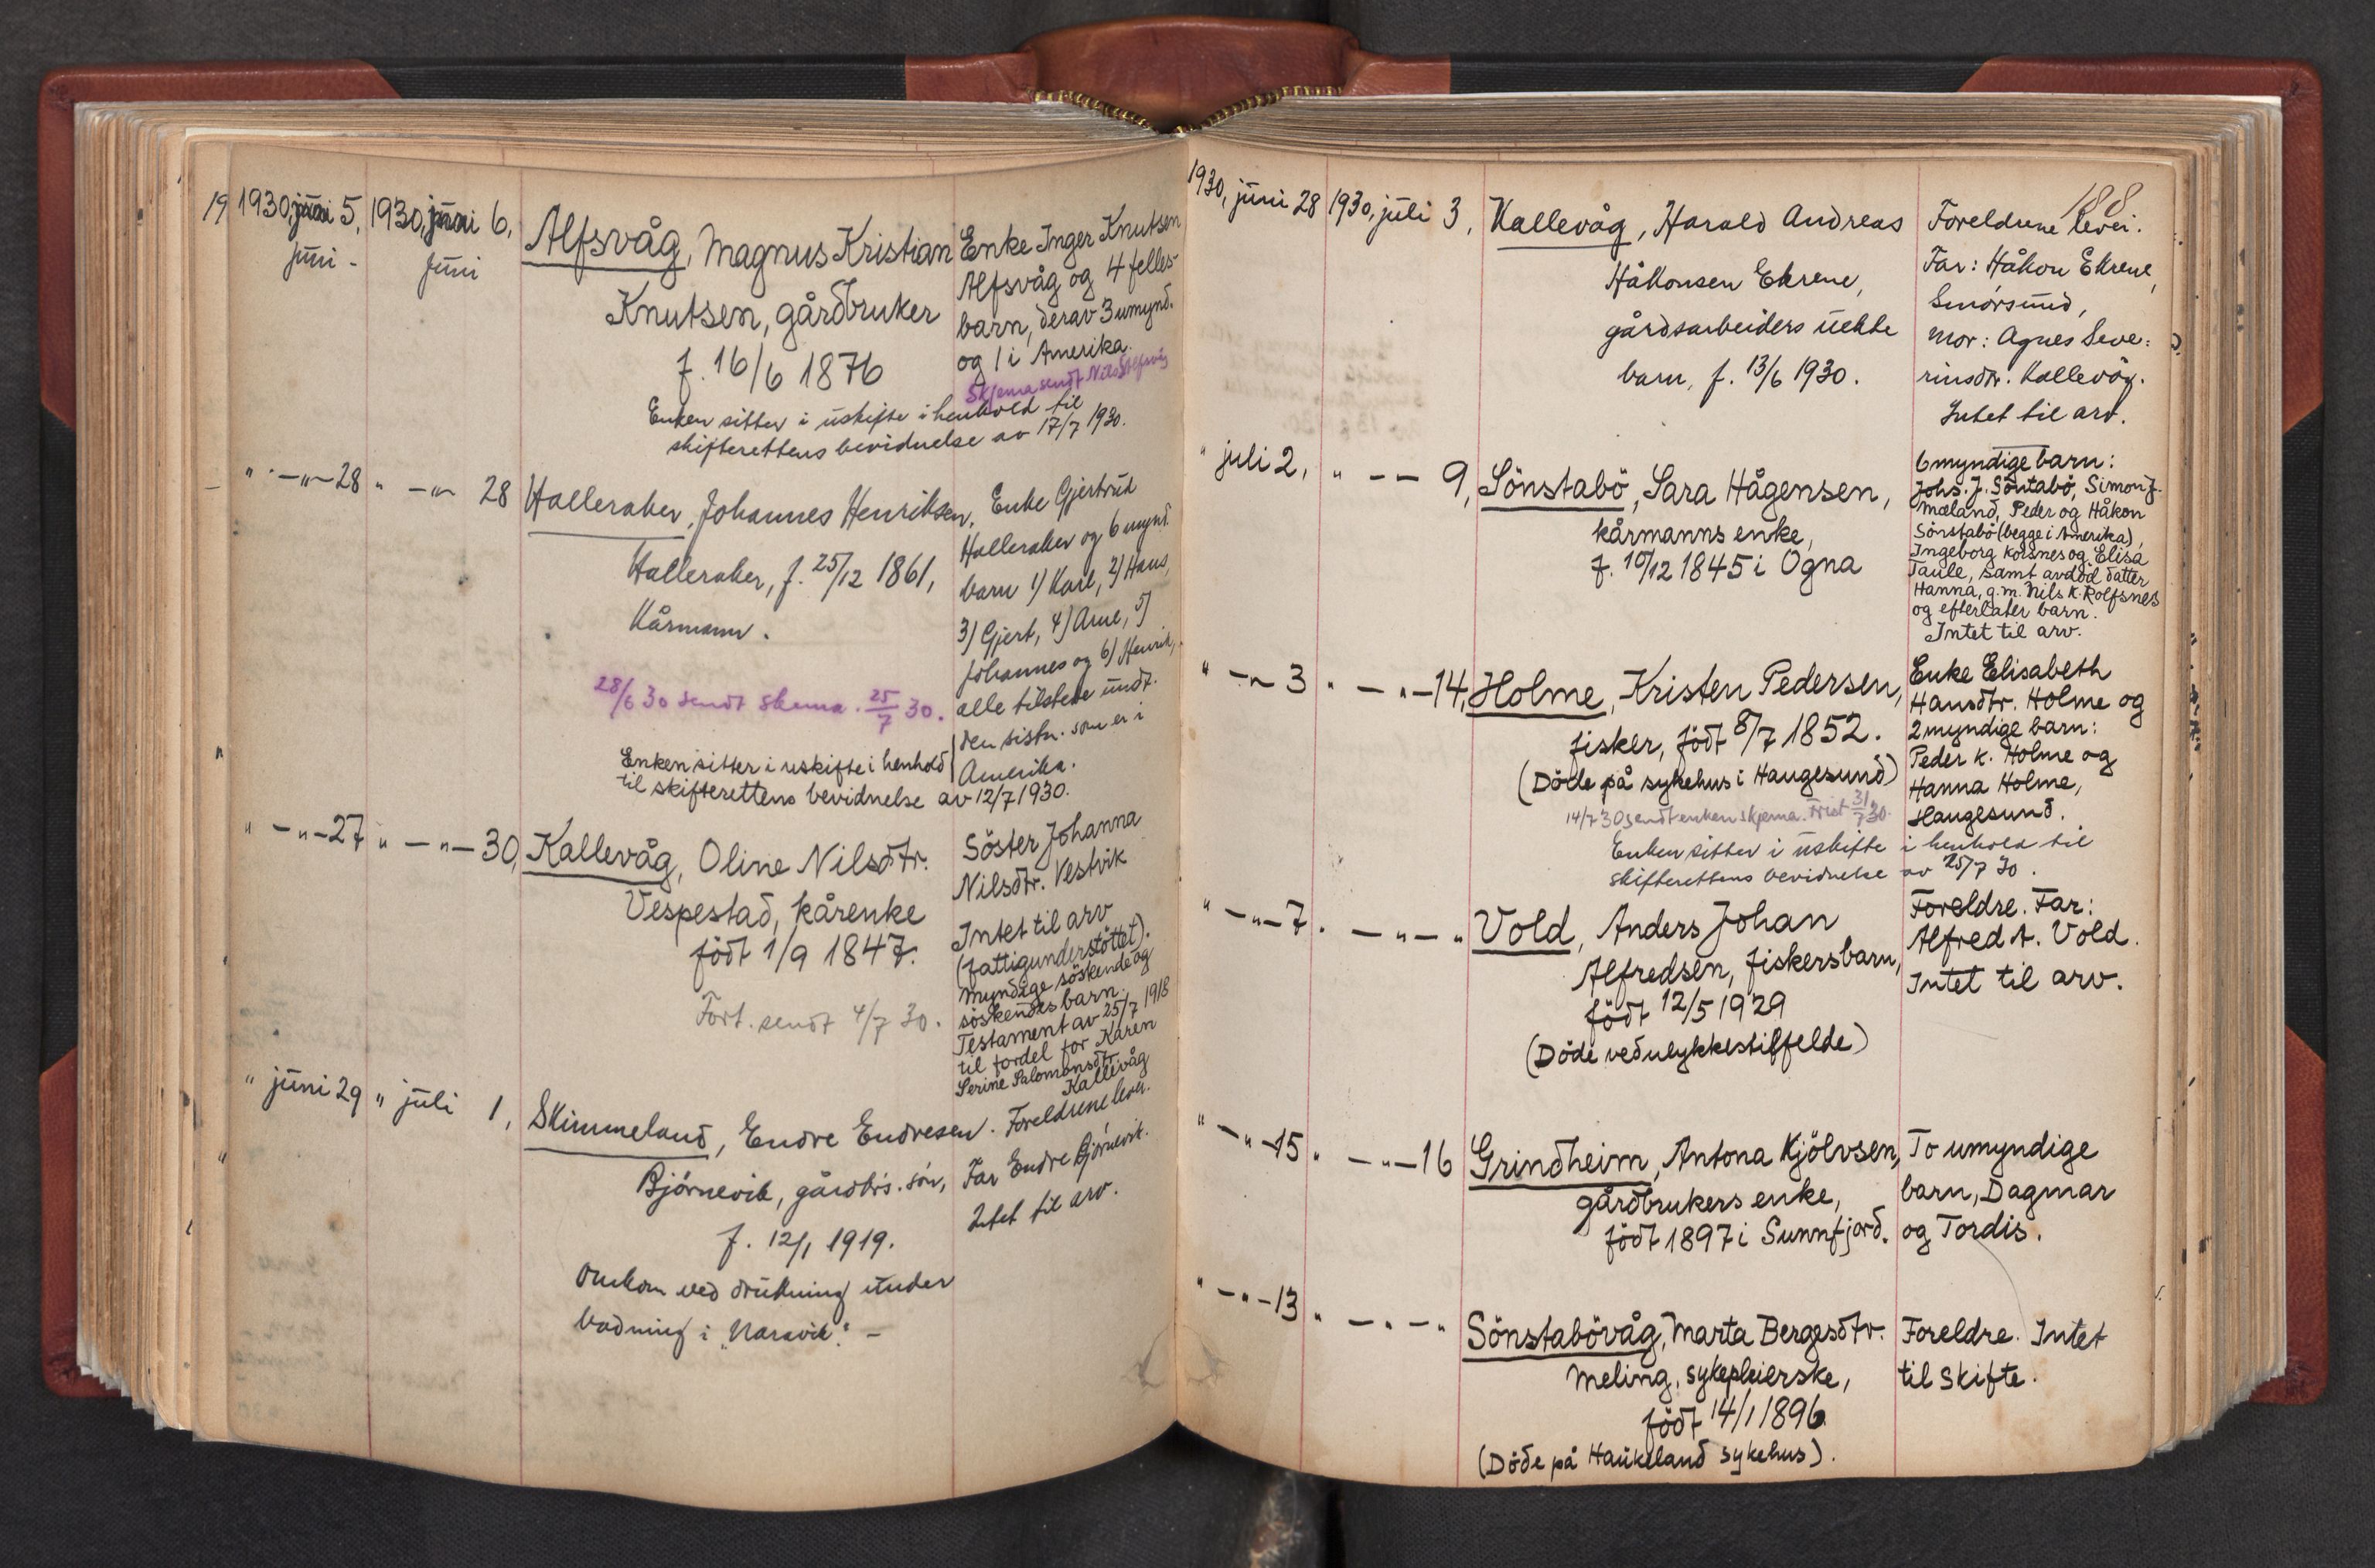 19 1930, juni 5, 1930, juni 6,
juni - juni
Alfsvåg, Magnus Kristian
Knutsen, gårdbruker
f. 16/6 1876
Enke Inger Knutsen
Alfsvåg og 4 felles-
barn, derav 3 umynd.
og 1 i Amerika.
Skjema sendt Nils Alfsvåg
Enken sitter i uskifte i henhold til
skifterettens bevidnelse av 17/7 1930.
" -"- 28 " -"- 28
Halleraker, Johannes Henriksen
Halleraker, f. 25/12 1861,
Kårmann.
28/6 30 sendt skema. 25/7 30.
Enke Gjertrud
Halleraker og 6 mynd.
barn 1) Karl, 2) Hans,
3) Gjert, 4) Arne, 5)
Johannes og 6) Henrik,
alle tilstede undt.
den sistn. som er i
Amerika.
Enken sitter i uskifte i henhold
til skifterettens bevidnelse av 12/7 1930.
" -"- 27 " -"- 30,
Kallevåg, Oline Nilsdtr.
Vespestad, kårenke
födt 1/9 1847.
Fort. sendt 4/7 30.
Söster Johanna
Nilsdtr. Vestvik
Intet til arv
(fattigunderstöttet).
Myndige söskende og
söskendes barn.
Testament av 25/7 1918
til fordel for Karen
Serine Salomonsdtr.
Kallevåg
" juni 29 " juli 1,
Skimmeland, Endre Endresen
Bjørnevik, gårdbr.s. søn,
f. 12/1 1919.
Omkom ved drukning under
badning i "Naravik". -
Foreldrene lever.
Far Endre Bjørnevik.
Intet til arv.
188
1930, juni 28 1930, juli 3,
Kallevåg, Harald Andreas
Håkonsen Ekrene,
gårdsarbeiders uekte
barn, f. 13/6 1930.
Foreldrene lever.
Far: Håkon Ekrene,
Smørsund,
Mor: Agnes Seve=
rinsdtr. Kallevåg.
Intet til arv.
" juli 2, " - - 9,
Sönstabö, Sara Hågensen,
kårmanns enke,
f. 10/12 1845 i Ogna
6 myndige barn:
Johs. J. Söntabö, Simon J.
Mæland, Peder og Håkon
Sönstabö (begge i Amerika),
Ingeborg Korsnes og Elisa
Taule, samt avdöd datter
Hanna, g.m. Nils K. Rolfsnes
og efterlater barn.
Intet til arv.
" -"- 3 " -"- 14,
Holme, Kristen Pedersen,
fisker, födt 8/7 1852.
(Döde på sykehus i Haugesund)
14/7 30 sendt enken skjema. Frist 31/7 30.
Enken sitter i uskifte i henhold til
skifterettens bevidnelse av 25/7 30.
Enke Elisabeth
Hansdtr. Holme og
2 myndige barn:
Peder K. Holme og
Hanna Holme,
Haugesund.
" -"- 7 " -"- "
Vold, Anders Johan
Alfredsen, fiskersbarn,
födt 12/5 1929
(Döde ved ulykkestilfelde)
Foreldre. Far:
Alfred A. Vold.
Intet til arv.
" -"- 15 " -"- 16
Grindheim, Antona Kjölvsen,
gårdbrukers enke,
födt 1897 i Sunnfjord.
To umyndige
barn, Dagmar
og Tordis.
" -"- 13 " -"- "
Sönstabövåg, Marta Bergesdtr.
Meling, sykepleierske,
födt 14/1 1896
(Döde på Haukeland sykehus).
Foreldre. Intet
til skifte.